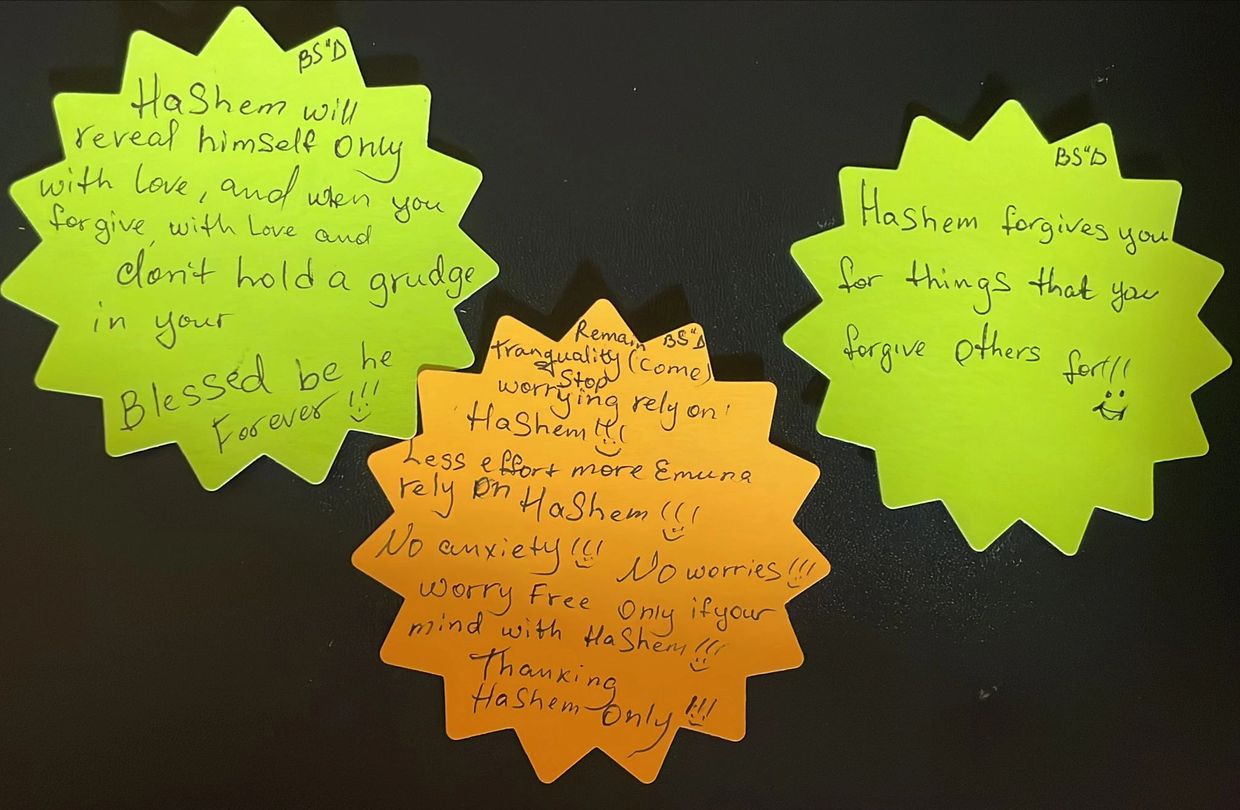 BS"D
HaShem will
reveal himself only
with love, and when you
forgive, with love and
don't hold a grudge
in your
Blessed be he
Forever!!!
BS"D
Remain
tranquality (come)
Stop
worrying rely on
HaShem!!!
Less effort more Emuna
rely on HaShem!!!
No anxiety!!! No worries!!!
worry Free Only if your
mind with HaShem!!!
Thanking
HaShem Only!!!
BS"D
Hashem forgives you
for things that you
forgive others for!!!